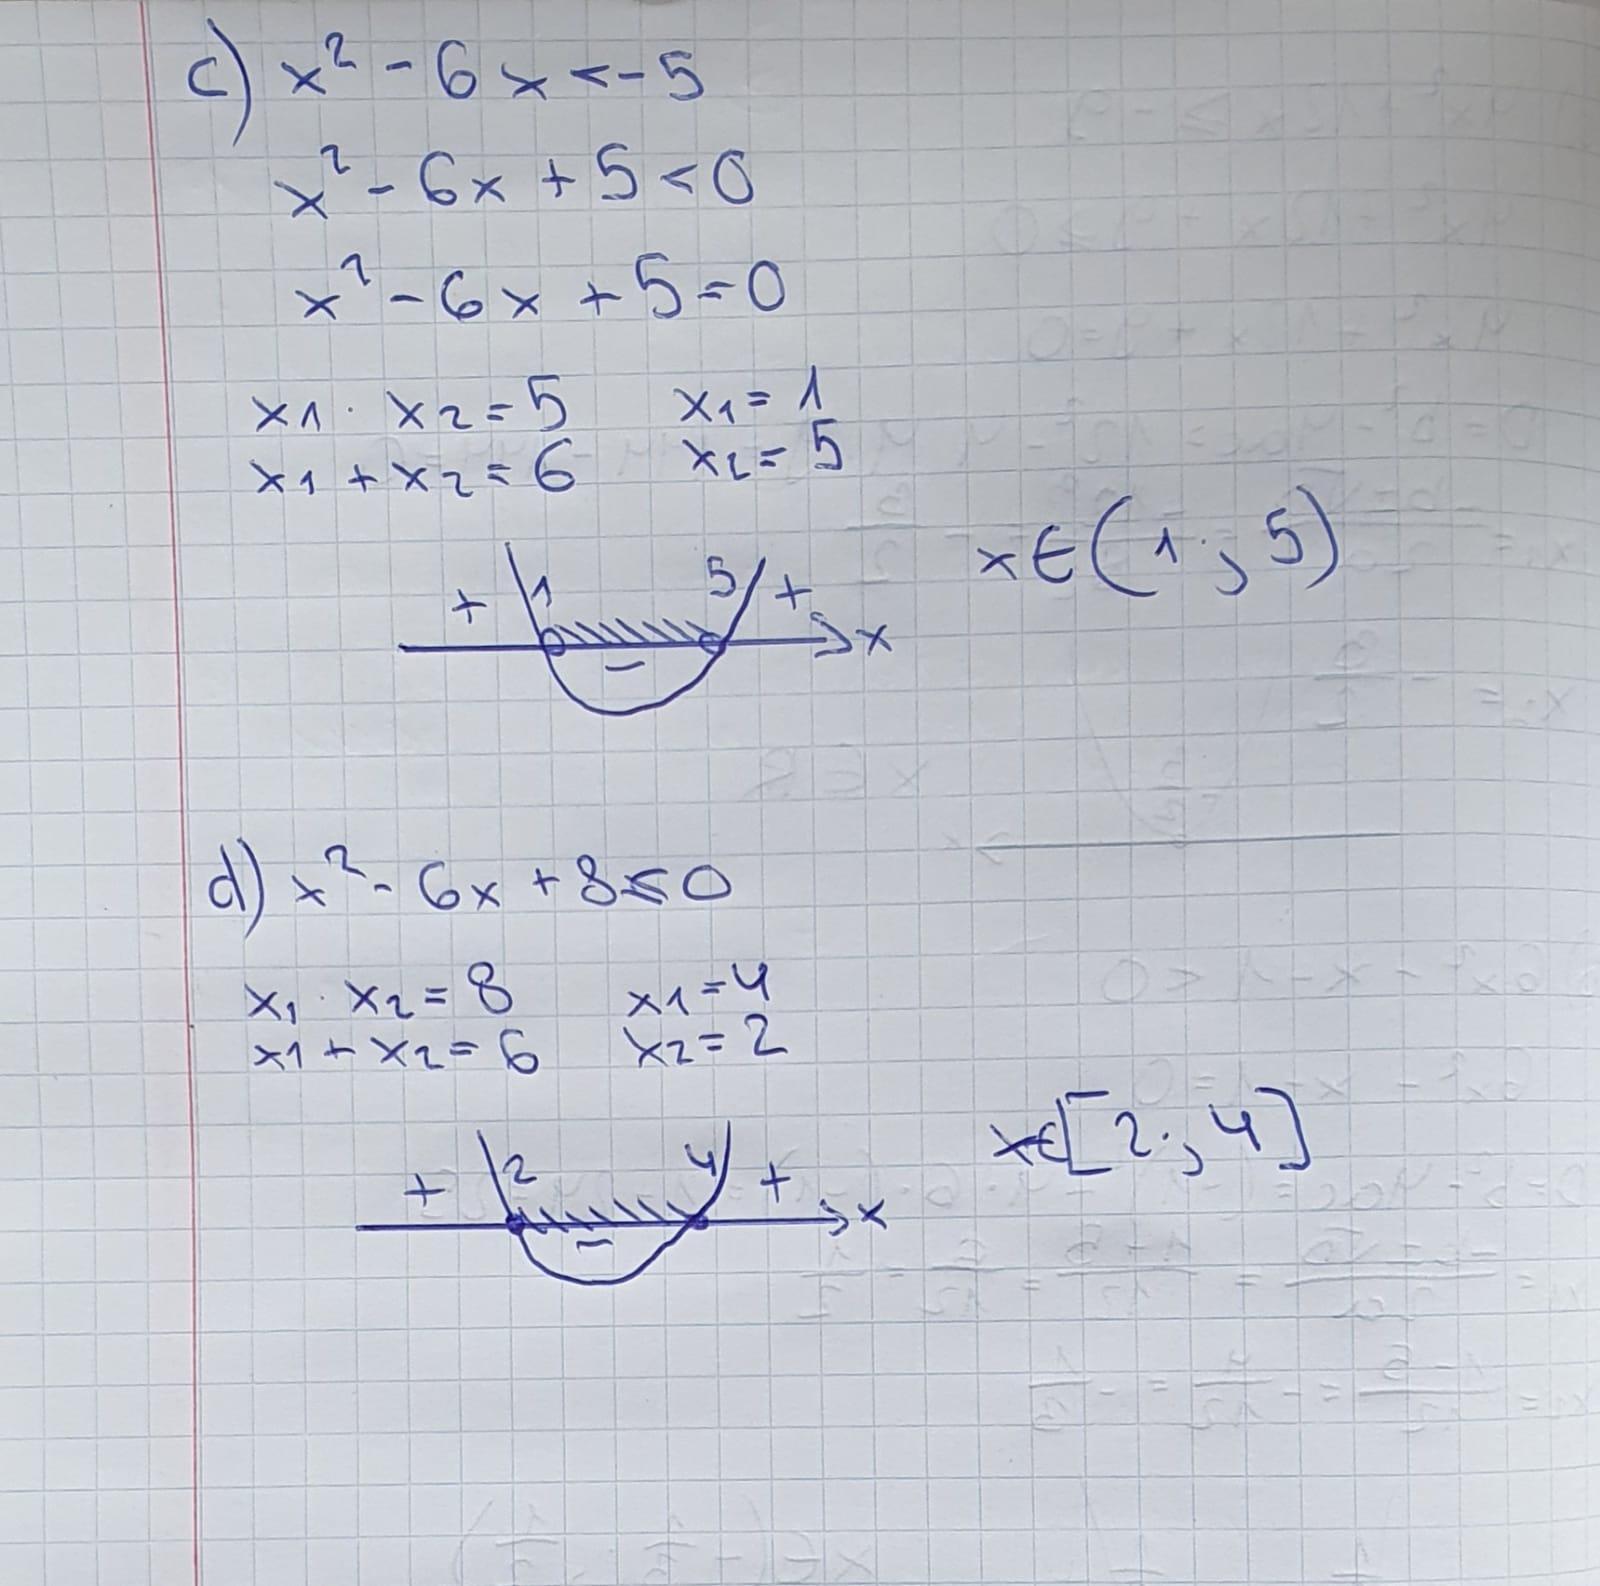 c) x² - 6x < -5
x² - 6x + 5 < 0
x² - 6x + 5 = 0
x1 · x2 = 5    x1 = 1
x1 + x2 = 6    x2 = 5
+ 1 5 + x
-
x∈(1 ; 5)
d) x² - 6x + 8 ≤ 0
x1 · x2 = 8    x1 = 4
x1 + x2 = 6    x2 = 2
+ 2 4 + x
-
x∈[2 ; 4]